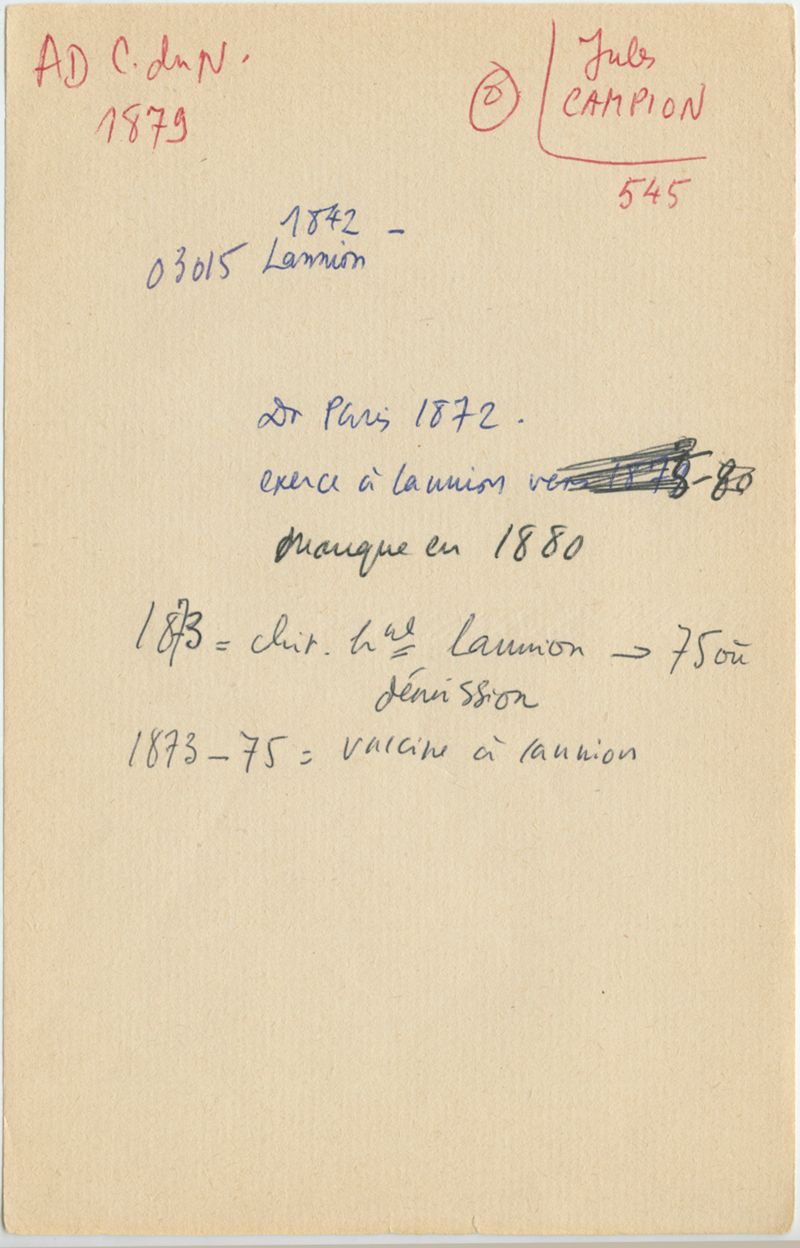 AD C. du N.
1879
Jules
CAMPION
545
1842 -
03015 Lannion
Dr Paris 1872.
exerce à Lannion vers 1878-80
manque en 1880
1873 = chir. hal Lannion → 75 où
démission
1873-75 = vaccine à Lannion